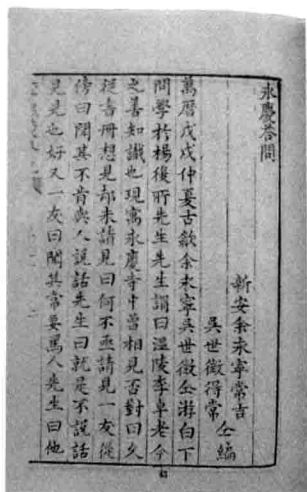 永慶荅問
新安余永寧常吉
吳世徵得常 仝編
萬曆戊戌仲夏古歙余永寧吳世徵仝游白下
問學於楊復所先生先生謂曰溫陵李卓老今
之善知識也現寓永慶寺中曾相見否對曰久
從書冊想見都未請見曰何不亟請見一友從
傍曰聞其不肯與人說話先生曰就是不說話
見見也好又一友曰聞其常要罵人先生曰他